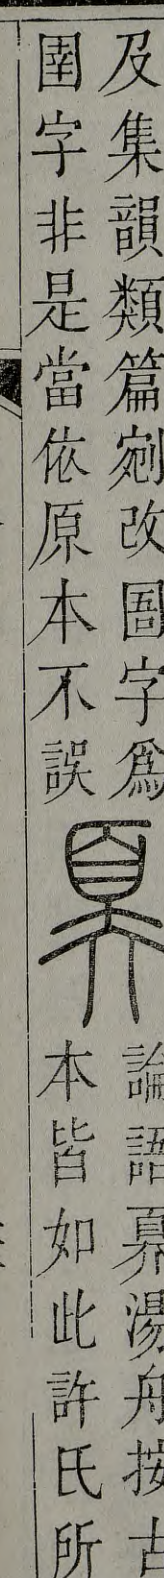 及集韻類篇剜改圄字爲
圉字非是當依原本不誤
奡
論語奡湯舟按古
本皆如此許氏所